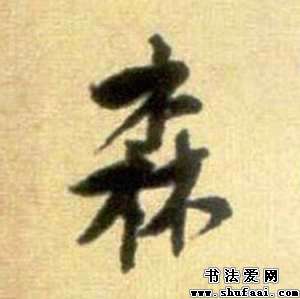 森
书法爱网
www.shufaai.com